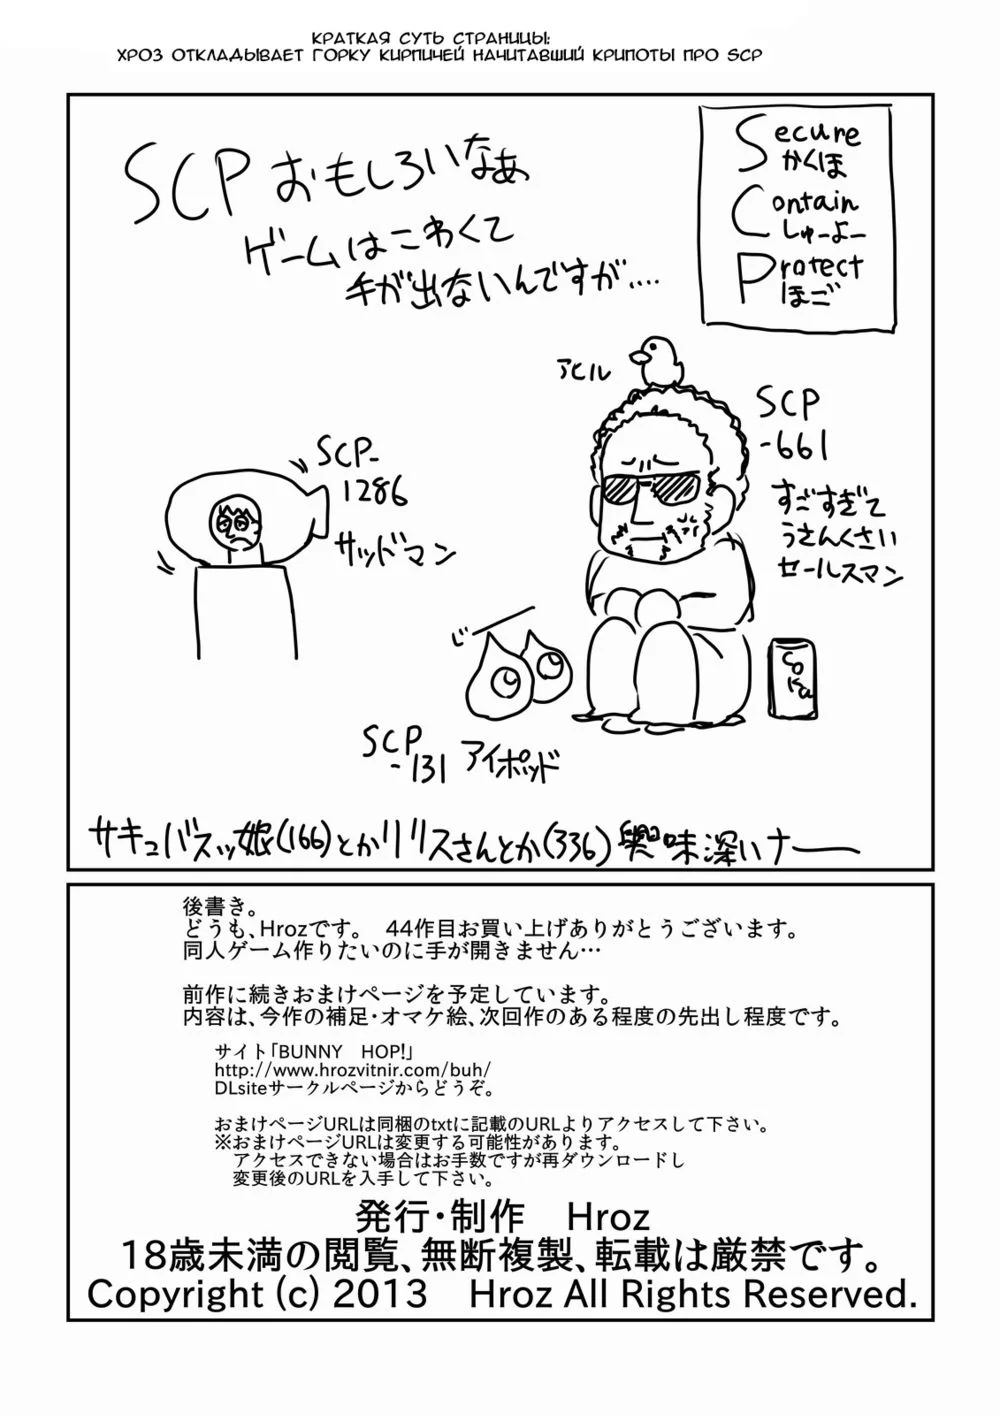 КРАТКАЯ СУТЬ СТРАНИЦЫ:
ХРОЗ ОТКЛАДЫВАЕТ ГОРКУ КИРПИЧЕЙ НАЧИТАВШИЙ КРИПОТЫ ПРО SCP
SCP おもしろいなぁ
ゲームはこわくて
手が出ないんですが....
Secure
かくほ
Contain
しゅーよー
Protect
ほご
アヒル
SCP
-661
すごすぎて
うさんくさい
セールスマン
SCP-
1286
サッドマン
SCP
-131 アイポッド
Coka
サキュバスッ娘(166)とかリリスさんとか(336)興味深いナー
後書き。
どうも、Hrozです。 44作目お買い上げありがとうございます。
同人ゲーム作りたいのに手が開きません…
前作に続きおまけページを予定しています。
内容は、今作の補足・オマケ絵、次回作のある程度の先出し程度です。
サイト「BUNNY HOP!」
http://www.hrozvitnir.com/buh/
DLsiteサークルページからどうぞ。
おまけページURLは同梱のtxtに記載のURLよりアクセスして下さい。
※おまけページURLは変更する可能性があります。
アクセスできない場合はお手数ですが再ダウンロードし
変更後のURLを入手して下さい。
発行・制作 Hroz
18歳未満の閲覧、無断複製、転載は厳禁です。
Copyright (c) 2013 Hroz All Rights Reserved.